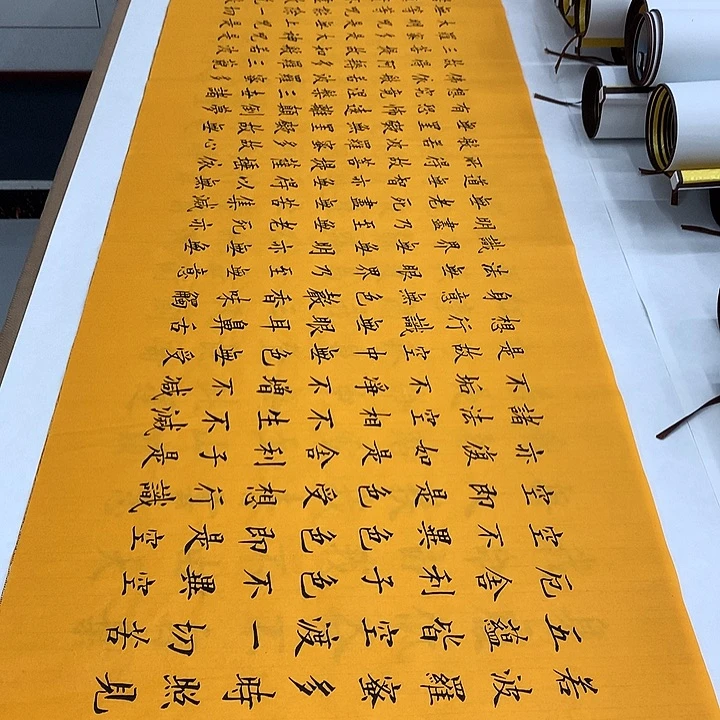 若波羅蜜多時照見
五蘊皆空渡一切苦
厄舍利子色不異空
空不異色色即是空
空即是色受想行識
亦復如是舍利子是
諸法空相不生不滅
不垢不淨不增不減
是故空中無色無受
想行識無眼耳鼻舌
身意無色聲香味觸
法無眼界乃至無意
識界無無明亦無無
明盡乃至無老死亦
無老死盡無苦集滅
道無智亦無得以無
所得故菩提薩埵依
般若波羅蜜多故心
無罣礙無罣礙故無
有恐怖遠離顛倒夢
想究竟涅槃三世諸
佛依般若波羅蜜多
故得阿耨多羅三藐